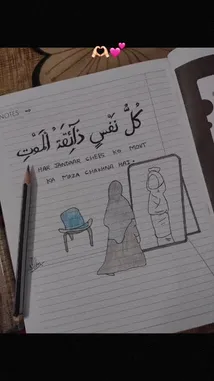 NOTES
كُلُّ نَفْسٍ ذَائِقَةُ الْمَوْتِ
HAR JANDAAR CHEEZ KO MOUT
KA MAZA CHAKHNA HAI.